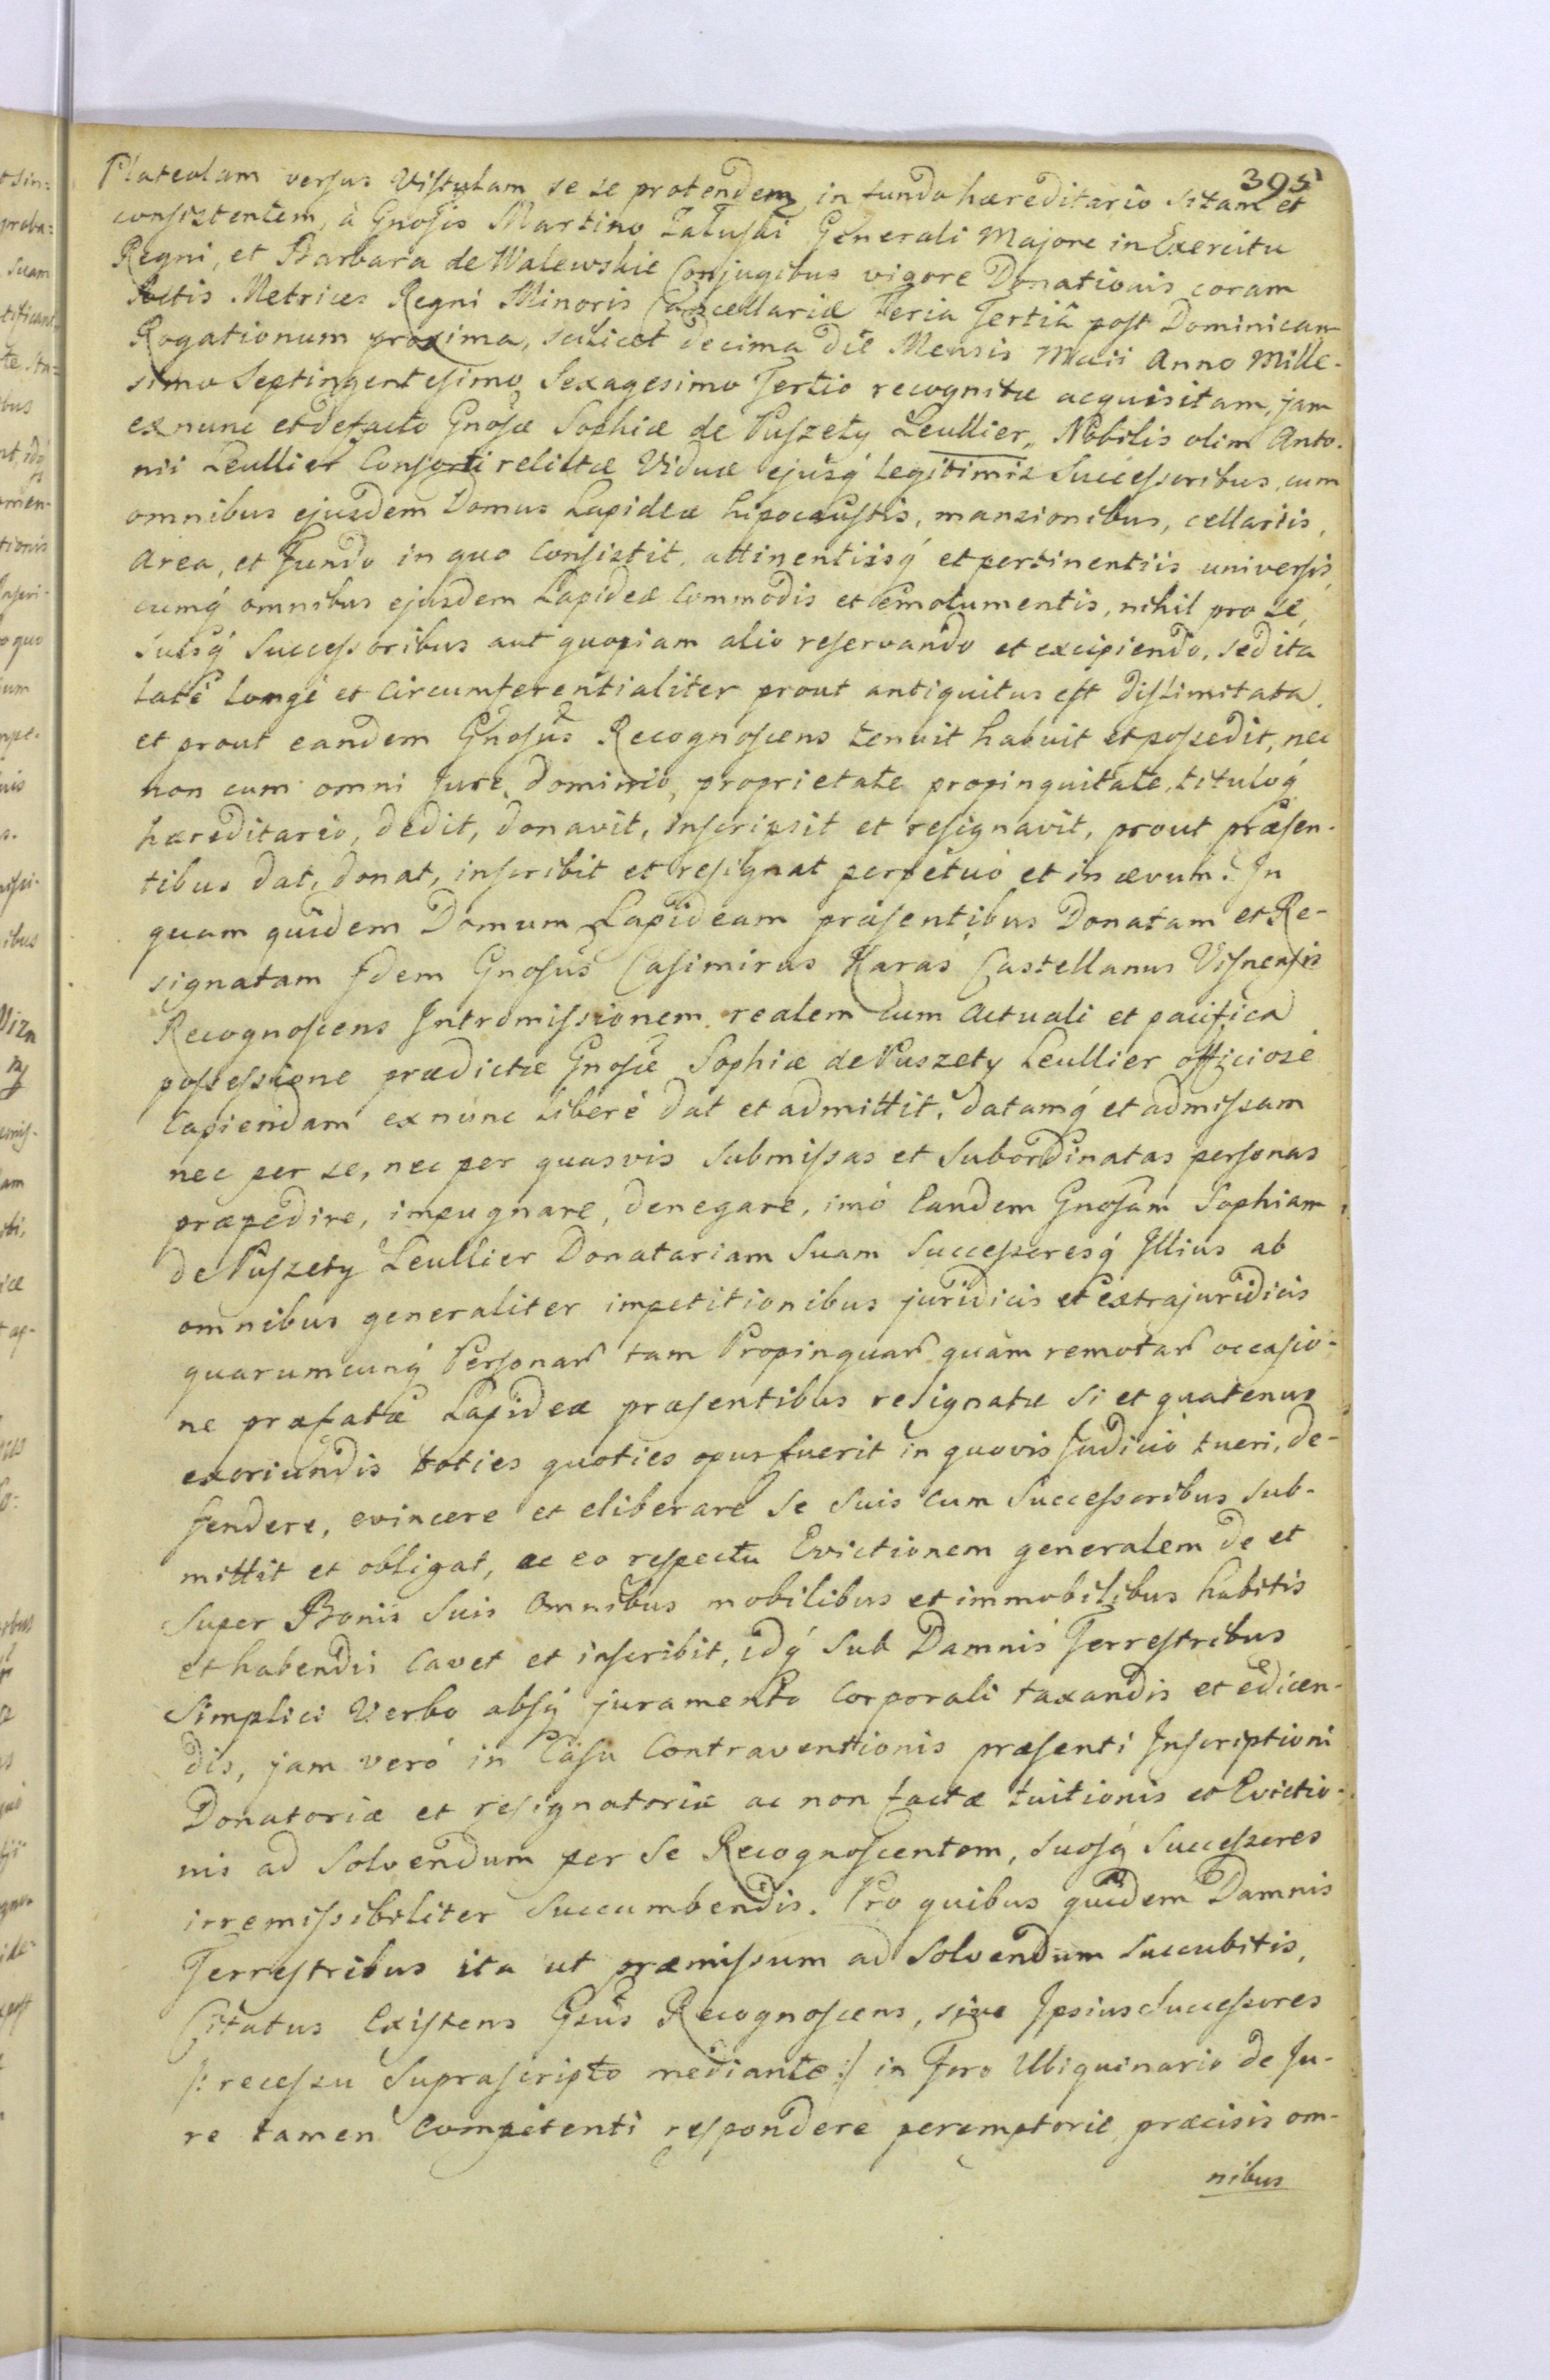 395
Plateolam versus Vistulam se se protendem in fundo hæreditario sitam et
consistentem, à Gnosis Martino Załuski Generali Majore in Exercitu
Regni, et Barbara de Walewskie Conjugibus vigore Donationis coram
Actis Metrices Regni Minoris Cancellariæ Feria Tertiâ post Dominicam
Rogationum proxima, scilicet decima die Mensis Maii Anno Mille-
simo Septingentesimo Sexagesimo Tertio recognitæ acquisitam, jam
ex nunc et de facto Gnosæ Sophiæ de Puszety Leullier, Nobilis olim Anto-
nii Leullier Consorti relictæ Viduæ ejusq́ legitimis Successoribus, cum
omnibus ejusdem Domus Lapideæ hipocaustis, mansionibus, cellariis,
area, et Fundo in quo Consistit, attinentiisq́ et pertinentiis universis,
cumq́ omnibus ejusdem Lapideæ Commodis et emolumentis, nihil pro se,
suisq́ Successoribus aut quopiam alio reservando et excipiendo, sed ita
latè longè et circumferentialiter prout antiquitus est dislimitata,
et prout eandem Gnosus Recognoscens tenuit habuit et possedit, nec
non cum omni Jure, dominio, proprietate propinquitate, tituloq́
hæreditario, dedit, donavit, inscripsit et resignavit, prout præsen-
tibus dat, donat, inscribit et resignat perpetuò et in ævum. In
quam quidem Domum Lapideam præsentibus Donatam et Re-
signatam Idem Gnosus Casimirus Karaś Castellanus Visnensis
Recognoscens Intromissionem realem cum actuali et pacifica
possessione prædictæ Gnosæ Sophiæ de Puszety Leullier officiosè
Capiendam ex nunc liberè dat et admittit, datamq́ et admissam
nec per se, nec per quasvis submissas et subordinatas personas
præpedire, impugnare, denegare, imò Eandem Gnosam Sophiam
de Puszety Leullier Donatariam Suam Successoresq́ Illius ab
omnibus generaliter impetitionibus juridicis et extrajuridicis
quarumcunq́ Personar tam Propinquar quàm remotar occasio-
ne præfatæ Lapideæ præsentibus resignatæ si et quatenus
exoriundis toties quoties opus fuerit in quovis Judicio tueri, de-
fendere, evincere et eliberare Se Suis cum Successoribus sub-
mittit et obligat, ac eo respectu Evictionem generalem de et
Super Bonis Suis Omnibus mobilibus et immobilibus habitis
et habendis Cavet et inscribit, idq́ Sub Damnis Terrestribus
Simplici Verbo absq́ juramento Corporali taxandis et edicen-
dis, jam verò in Casu Contraventionis præsenti Inscriptioni
Donatoriæ et resignatoriæ ac non factæ tuitionis et Evictio-
nis ad Solvendum per Se Recognoscentem, Suosq́ Successores
irremissibiliter Succumbendis. Pro quibus quidem Damnis
Terrestribus ita ut præmissum ad Solvendum Succubitis,
Citatus Existens Gsus Recognoscens, sive Ipsius Successores
/: recessu Suprascripto mediante :/ in Foro Ubiquinario de Ju-
re tamen Competenti respondere peremptorie, præcisis om-
nibus